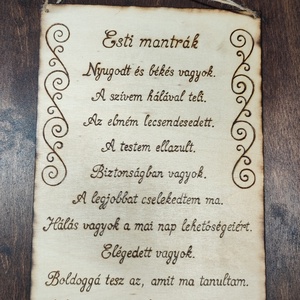 Esti mantrák
Nyugodt és békés vagyok.
A szívem hálával teli.
Az elmém lecsendesedett.
A testem ellazult.
Biztonságban vagyok.
A legjobbat cselekedtem ma.
Hálás vagyok a mai nap lehetőségeiért.
Elégedett vagyok.
Boldoggá tesz az, amit ma tanultam.